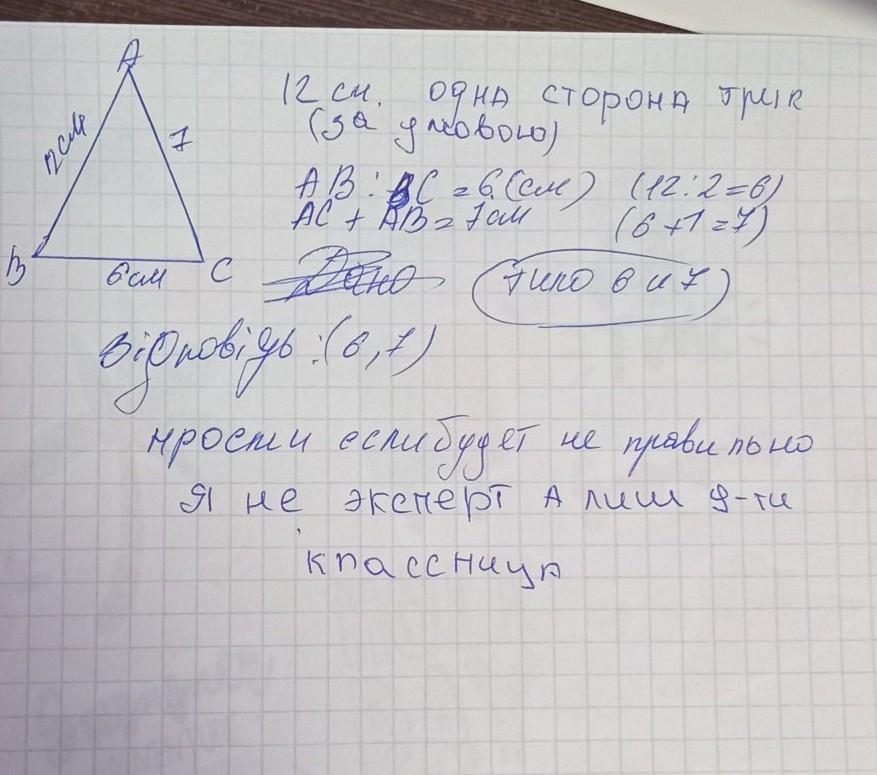 A
12 см. одна сторона трик
(за умовою)
12 см
7
AB : BC = 6 (см) (12:2=6)
AC + AB = 7 см (6+1=7)
B
6 см
C
Дано
(типо 6 и 7)
Відповідь :(6,7)
прости если будет не правильно
Я не эксперт а лиш 9-ти
классница